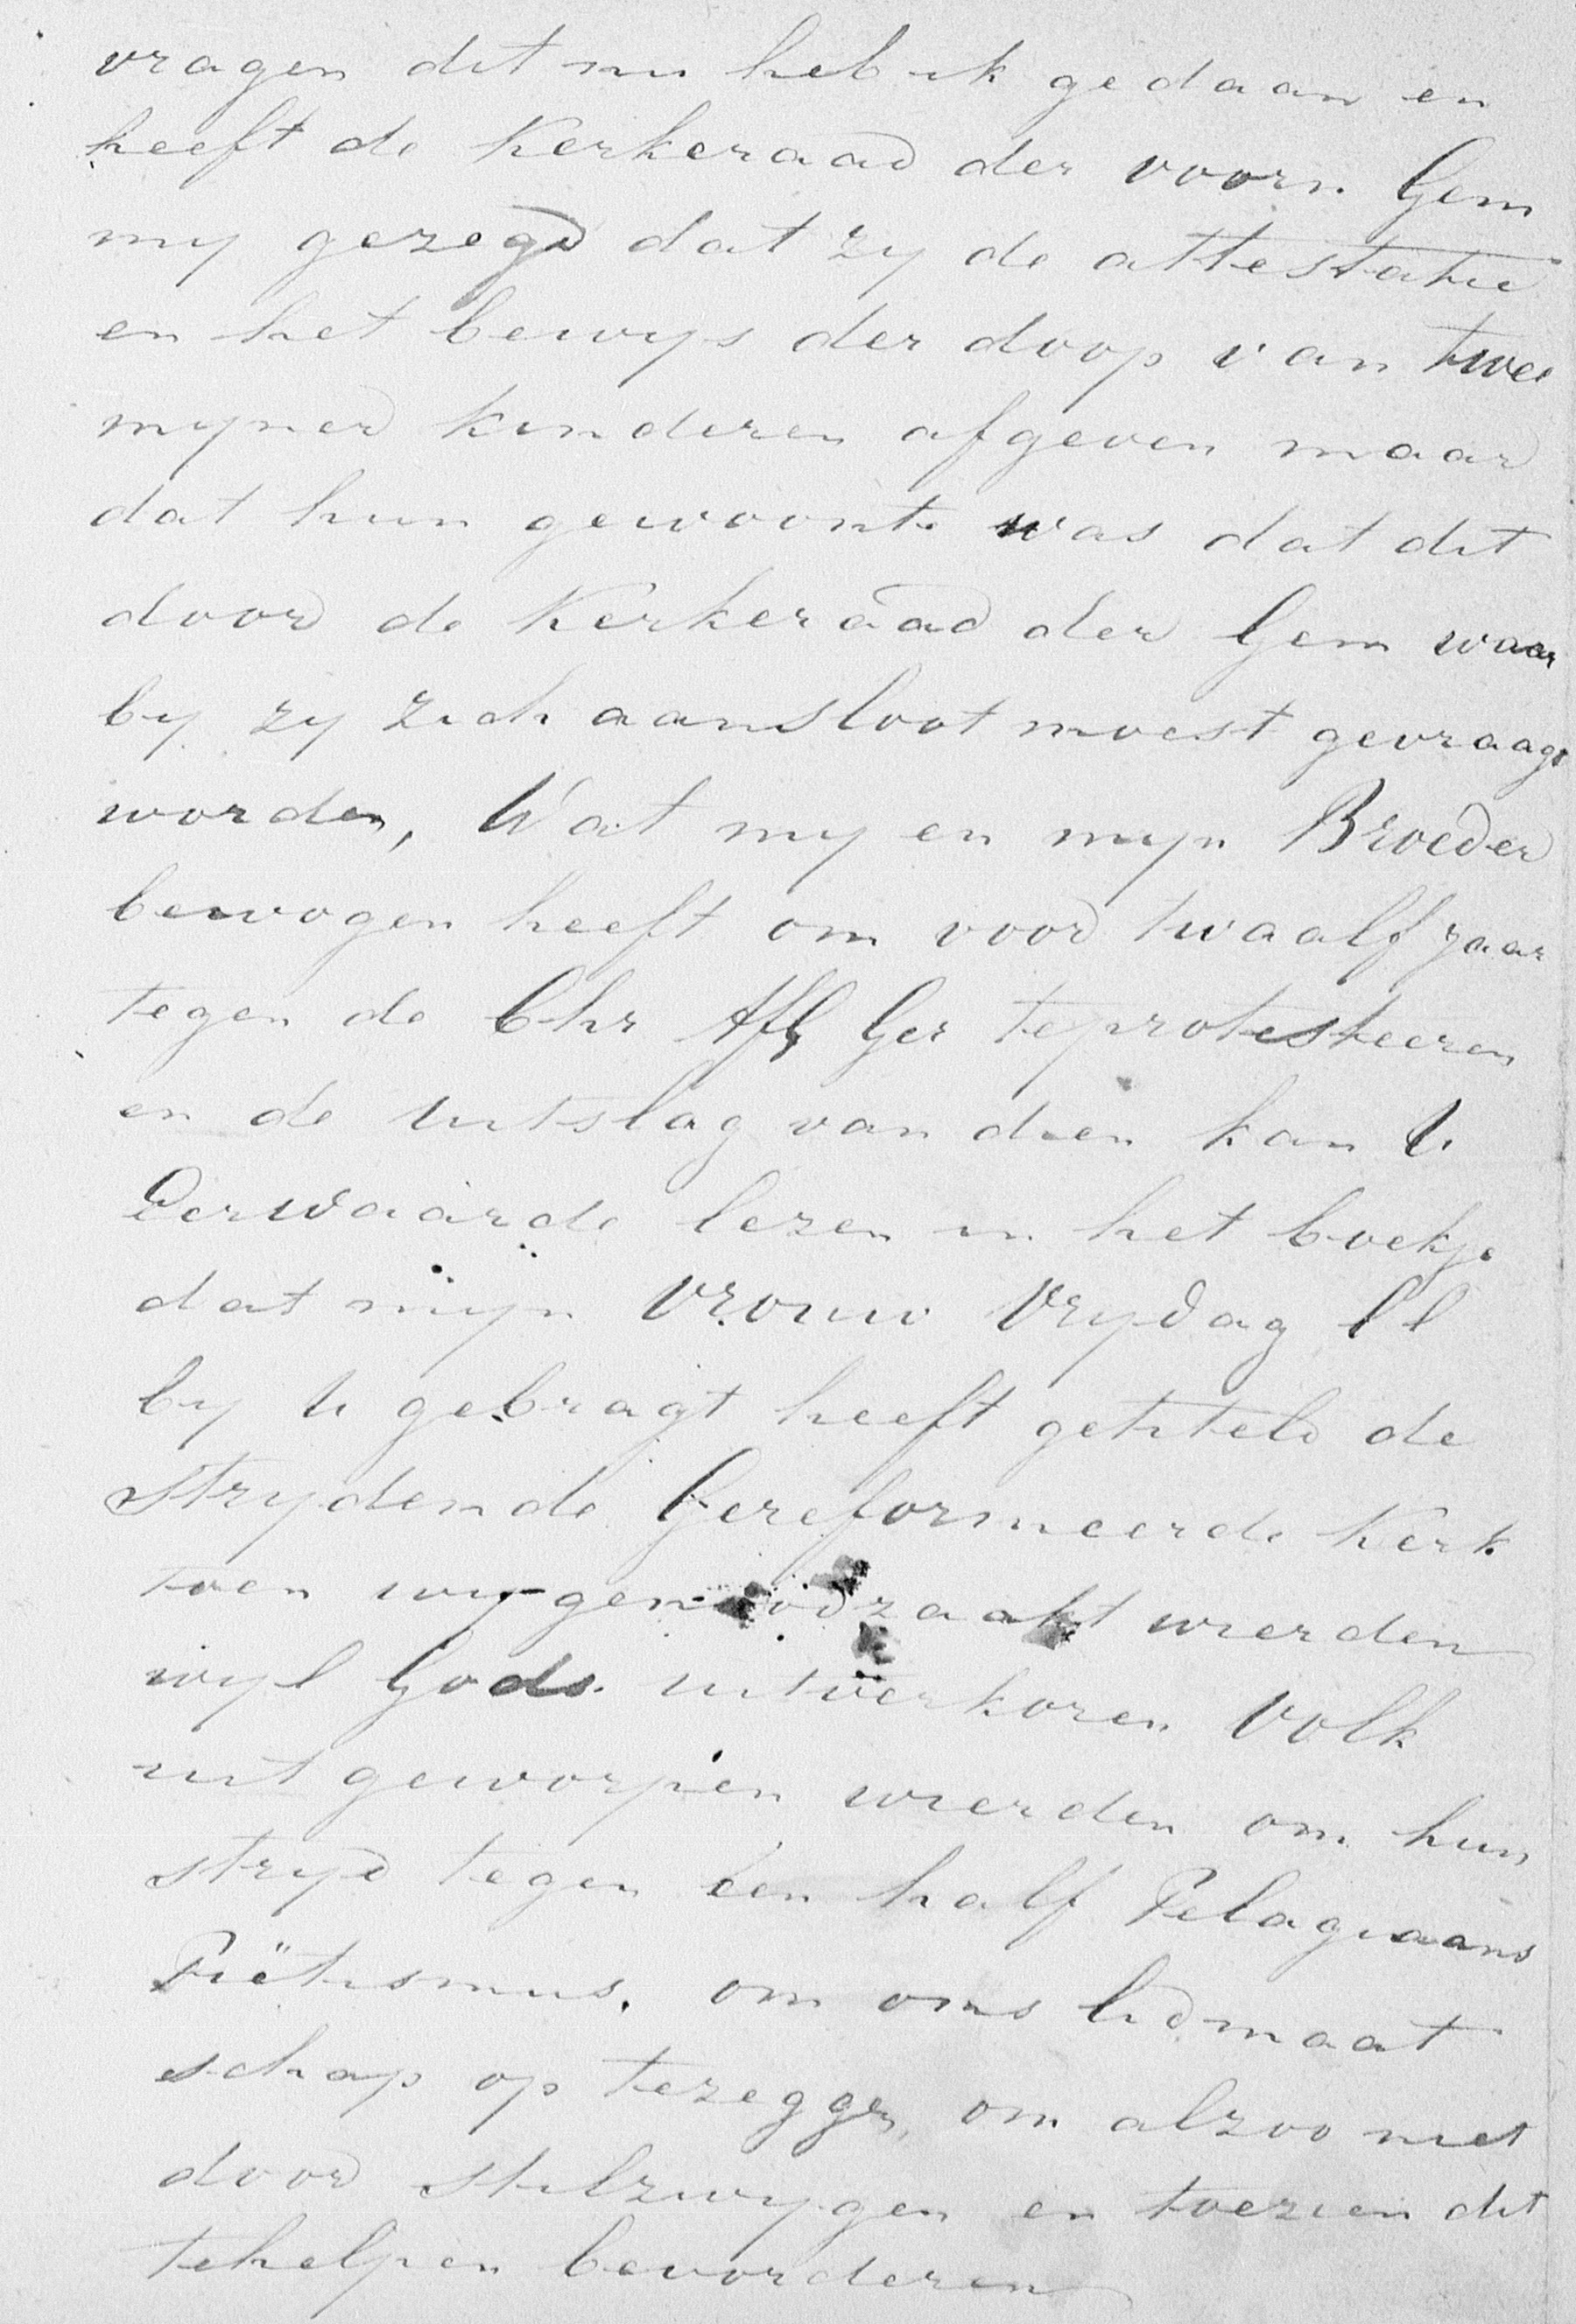 vragen dit nu heb ik gedaan en
heeft de Kerkeraad der voorn. Gem
my gezegd dat zy de attestatie
en het bewys der doop van twee
myner kinderen afgeven maar
dat hun gewoonte was dat dit
door de Kerkeraad der Gem waar
by zy zich aansloot moest gevraagd
worden, Wat my en myn Broeder
bewogen heeft om voor twaalf jaar
tegen de Chr Afg Ger teprotesteeren
en de uitslag van dien kan U
Eerwaarde lezen in het boekje
dat mijn vrouw Vrydag ll
by U gebragt heeft getiteld de
strydende Gereformeerde Kerk
toen wy genoodzaakt wierden
wyl Gods uitverkoren Volk
uitgeworpen wierden om hun
stryd tegen een half Pelagiaans
Piëtismus. om ons lidmaat
schap op tezeggen, om alzoo niet
door stilzwygen en toezien dit
tehelpen bevorderen